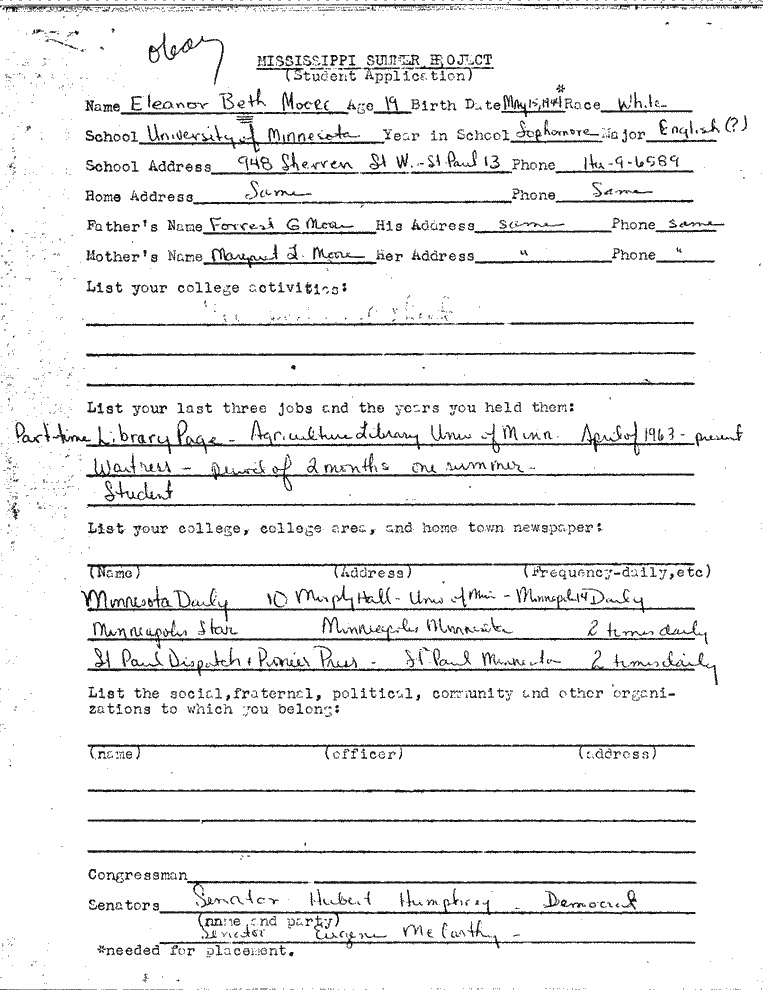 okay
MISSISSIPPI SUMMER PROJECT
(Student Application)
Name Eleanor Beth Moore Age 19 Birth Date May 15, 1944 *Race White
School University of Minnesota Year in School Sophomore Major English (?)
School Address 948 Sherren St W. - St Paul 13 Phone Hu-9-6589
Home Address Same Phone Same
Father's Name Forrest G Moore His Address same Phone same
Mother's Name Margaret L. Moore Her Address " Phone "
List your college activities:
List your last three jobs and the years you held them:
Part-time Library Page - Agriculture Library Univ of Minn. April of 1963 - present
Waitress - period of 2 months one summer -
Student
List your college, college area, and home town newspaper:
(Name) (Address) (Frequency-daily, etc)
Minnesota Daily 10 Murphy Hall - Univ of Minn - Minneapolis 14 Daily
Minneapolis Star Minneapolis Minnesota 2 times daily
St Paul Dispatch & Pionier Press - St. Paul Minnesota 2 times daily
List the social, fraternal, political, community and other organi-
zations to which you belong:
(name) (officer) (address)
Congressman
Senators Senator Hubert Humphrey - Democrat
(name and party)
Senator Eugene McCarthy -
*needed for placement.